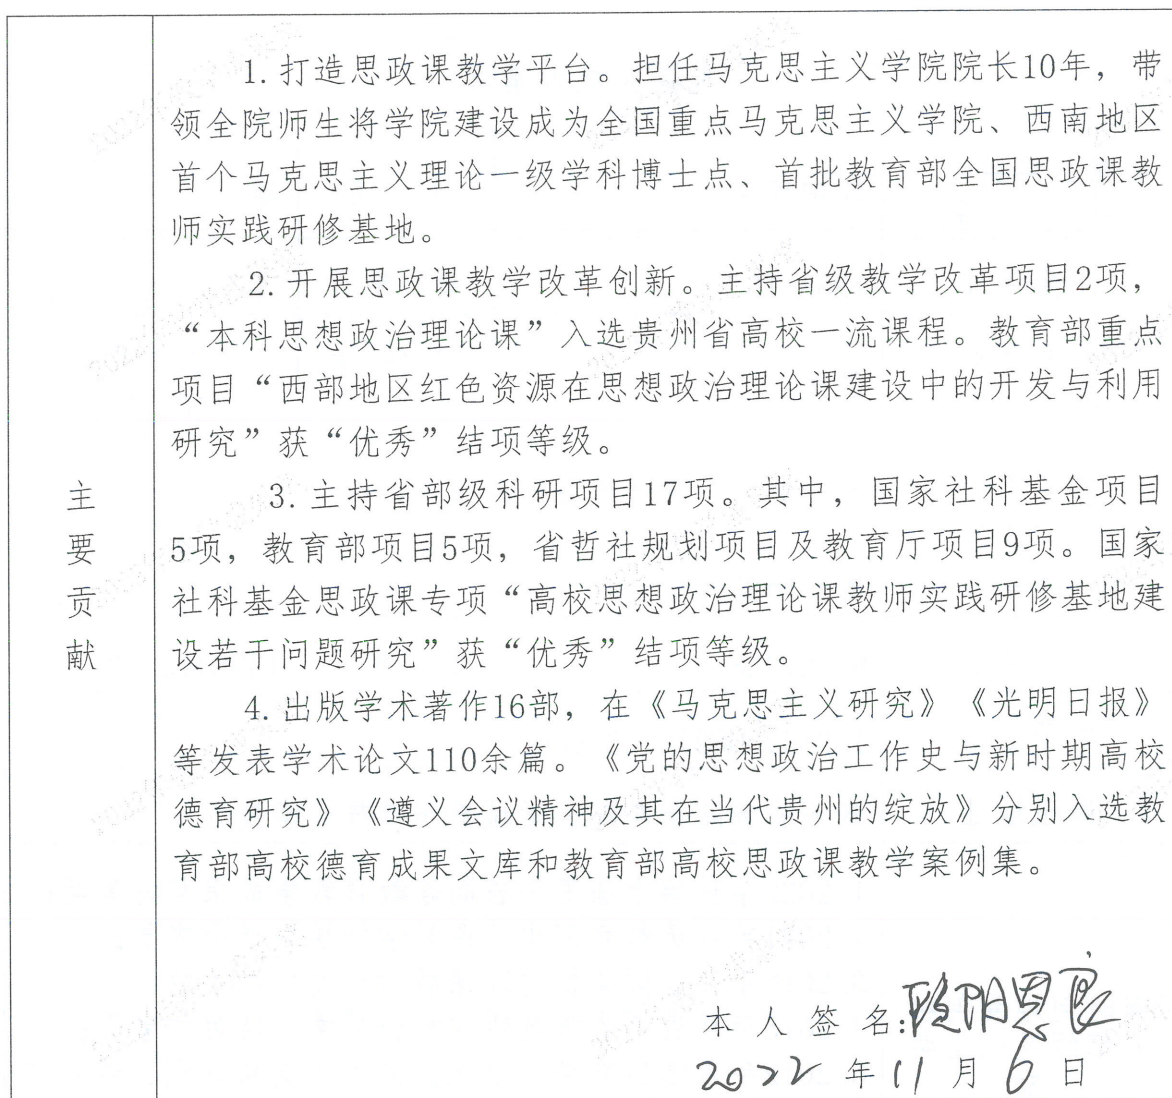 1.打造思政课教学平台。担任马克思主义学院院长10年，带
领全院师生将学院建设成为全国重点马克思主义学院、西南地区
首个马克思主义理论一级学科博士点、首批教育部全国思政课教
师实践研修基地。
2.开展思政课教学改革创新。主持省级教学改革项目2项，
“本科思想政治理论课”入选贵州省高校一流课程。教育部重点
项目“西部地区红色资源在思想政治理论课建设中的开发与利用
研究”获“优秀”结项等级。
主要贡献
3.主持省部级科研项目17项。其中，国家社科基金项目
5项，教育部项目5项，省哲社规划项目及教育厅项目9项。国家
社科基金思政课专项“高校思想政治理论课教师实践研修基地建
设若干问题研究”获“优秀”结项等级。
4.出版学术著作16部，在《马克思主义研究》《光明日报》
等发表学术论文110余篇。《党的思想政治工作史与新时期高校
德育研究》《遵义会议精神及其在当代贵州的绽放》分别入选教
育部高校德育成果文库和教育部高校思政课教学案例集。
本人签名:欧阳恩良
2022年11月6日